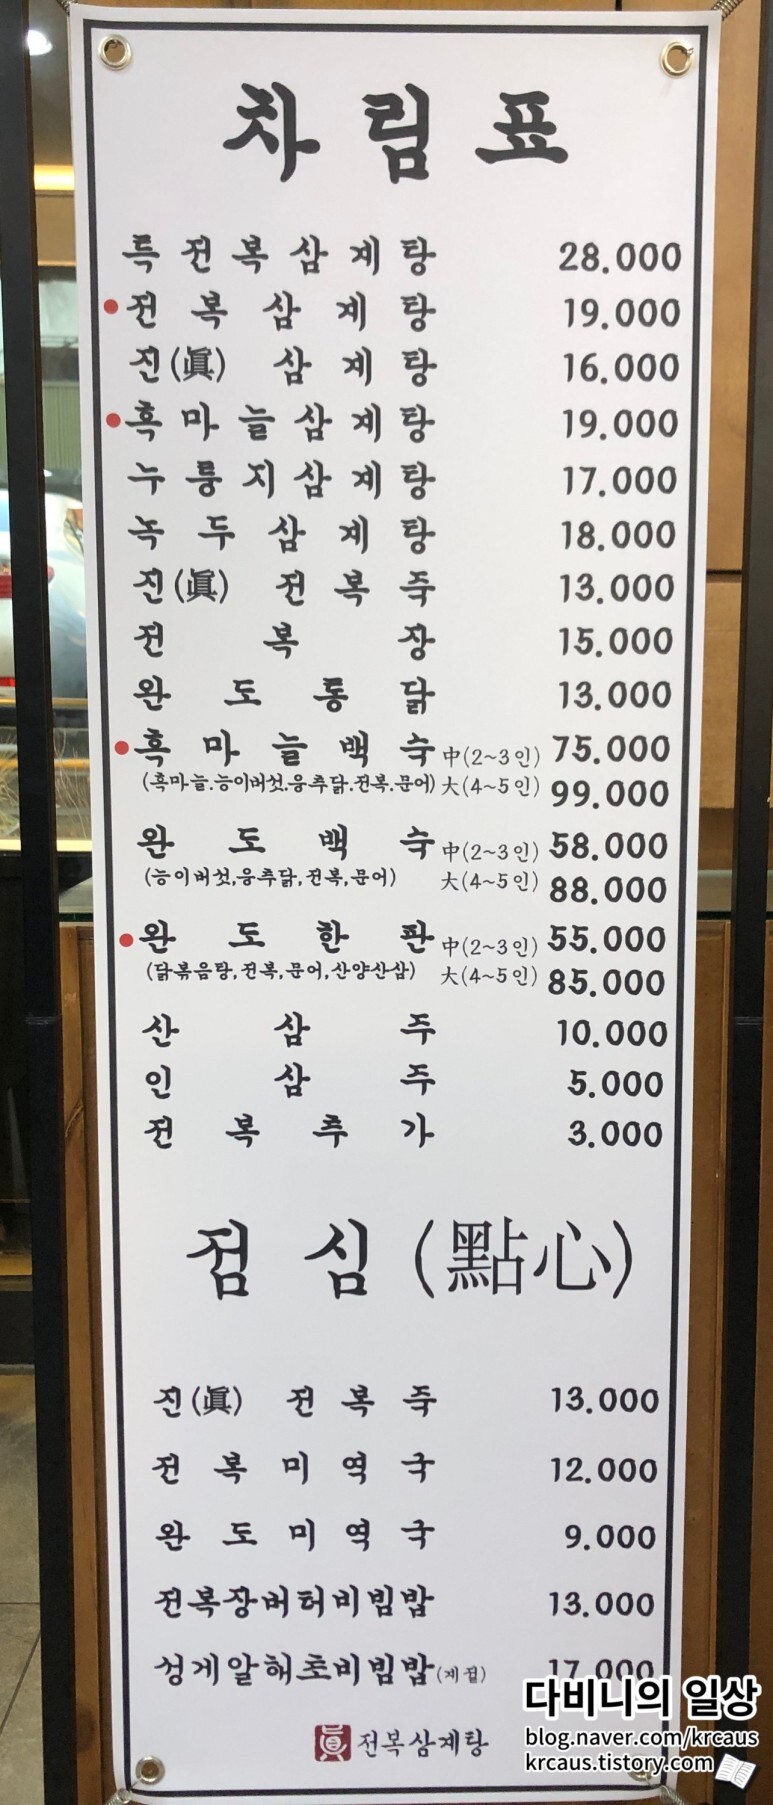 차림표
특전복삼계탕 28.000
전복삼계탕 19.000
진(眞) 삼계탕 16.000
흑마늘삼계탕 19.000
누룽지삼계탕 17.000
녹두삼계탕 18.000
진(眞) 전복죽 13.000
전복장 15.000
완도통닭 13.000
흑마늘백숙 中(2~3인) 75.000
(흑마늘.능이버섯.웅추닭.전복.문어) 大(4~5인) 99.000
완도백숙 中(2~3인) 58.000
(능이버섯,웅추닭,전복,문어) 大(4~5인) 88.000
완도한판 中(2~3인) 55.000
(닭볶음탕,전복,문어,산양산삼) 大(4~5인) 85.000
산삼주 10.000
인삼주 5.000
전복추가 3.000
점심(點心)
진(眞) 전복죽 13.000
전복미역국 12.000
완도미역국 9.000
전복장버터비빔밥 13.000
성게알해초비빔밥(계절) 17.000
眞 전복삼계탕
다비니의 일상
blog.naver.com/krcaus
krcaus.tistory.com